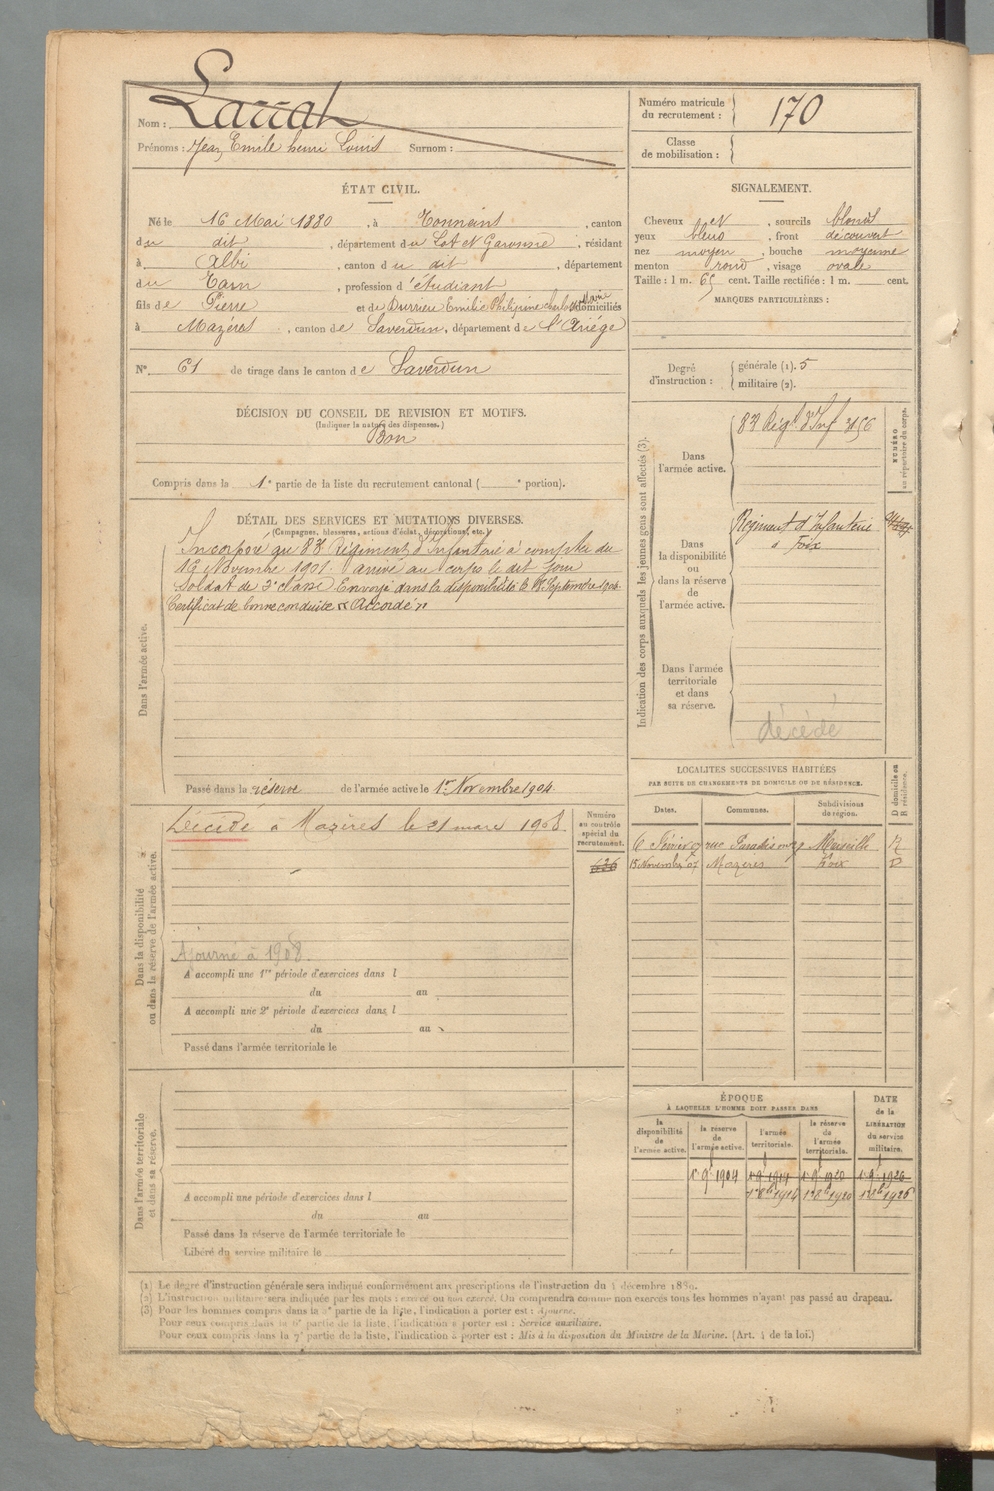 Nom : Larrat
Prénoms : Jean Emile henri Louis Surnom :
Numéro matricule du recrutement : 170
Classe de mobilisation :
ÉTAT CIVIL.
Né le 16 Mai 1880, à Tonneins, canton
du dit, département du Lot et Garonne, résidant
à Albi, canton du dit, département
du Tarn, profession d'étudiant
fils de Pierre et de Durrieu Emilie Philipine domiciliés
à Mazéres, canton de Saverdun, département de l'Ariége
N° 61 de tirage dans le canton de Saverdun
SIGNALEMENT.
Cheveux et, sourcils blonds
yeux bleus, front découvert
nez moyen, bouche moyenne
menton rond, visage ovale
Taille : 1 m. 65 cent. Taille rectifiée : 1 m. cent.
MARQUES PARTICULIÈRES :
Degré d'instruction : générale (1). 5
militaire (2).
DÉCISION DU CONSEIL DE REVISION ET MOTIFS.
(Indiquer la nature des dispenses.)
Bon
Compris dans la 1e partie de la liste du recrutement cantonal ( e portion).
DÉTAIL DES SERVICES ET MUTATIONS DIVERSES.
(Campagnes, blessures, actions d'éclat, décorations, etc.)
Incorporé au 83 Régiment d'Infanterie à compter du
16 Novembre 1901. arrivé au corps le dit jour
Soldat de 2e classe Envoyé dans la disponibilité le Septembre 1904
Certificat de bonne conduite "Accordé"
Dans l'armée active.
Passé dans la réserve de l'armée active le 1er Novembre 1904
Indication des corps auxquels les jeunes gens sont affectés (3).
Dans l'armée active.
83 Régt d'Inf 3156
Dans la disponibilité ou dans la réserve de l'armée active.
Régiment d'Infanterie
à Foix
Dans l'armée territoriale et dans sa réserve.
décédé
NUMÉRO au répertoire du corps.
Dans la disponibilité ou dans la réserve de l'armée active.
Décédé à Mazères le 21 mars 1908
Numéro au contrôle spécial du recrutement.
636
Ajourné à 1908.
A accompli une 1re période d'exercices dans l
du au
A accompli une 2e période d'exercices dans l
du au
Passé dans l'armée territoriale le
LOCALITÉS SUCCESSIVES HABITÉES
PAR SUITE DE CHANGEMENTS DE DOMICILE OU DE RÉSIDENCE.
Dates. Communes. Subdivisions de région. D domicile ou R résidence.
6 Février 07 rue Paradis Marseille R
15 Novembre 07 Mazeres Foix D
Dans l'armée territoriale et dans sa réserve.
A accompli une période d'exercices dans l
du au
Passé dans la réserve de l'armée territoriale le
Libéré du service militaire le
ÉPOQUE
À LAQUELLE L'HOMME DOIT PASSER DANS
la disponibilité de l'armée active.
la réserve de l'armée active.
l'armée territoriale.
la réserve de l'armée territoriale.
DATE de la LIBÉRATION du service militaire.
1er 9bre 1904 1er 9bre 1914 1er 9bre 1920 1er 9bre 1926
1er 8bre 1914 1er 8bre 1920 1er 8bre 1926
(1) Le degré d'instruction générale sera indiqué conformément aux prescriptions de l'instruction du 4 décembre 1889.
(2) L'instruction militaire sera indiquée par les mots : exercé ou non exercé. On comprendra comme non exercés tous les hommes n'ayant pas passé au drapeau.
(3) Pour les hommes compris dans la 2e partie de la liste, l'indication à porter est : Ajourné.
Pour ceux compris dans la 6e partie de la liste, l'indication à porter est : Service auxiliaire.
Pour ceux compris dans la 7e partie de la liste, l'indication à porter est : Mis à la disposition du Ministre de la Marine. (Art. 4 de la loi.)